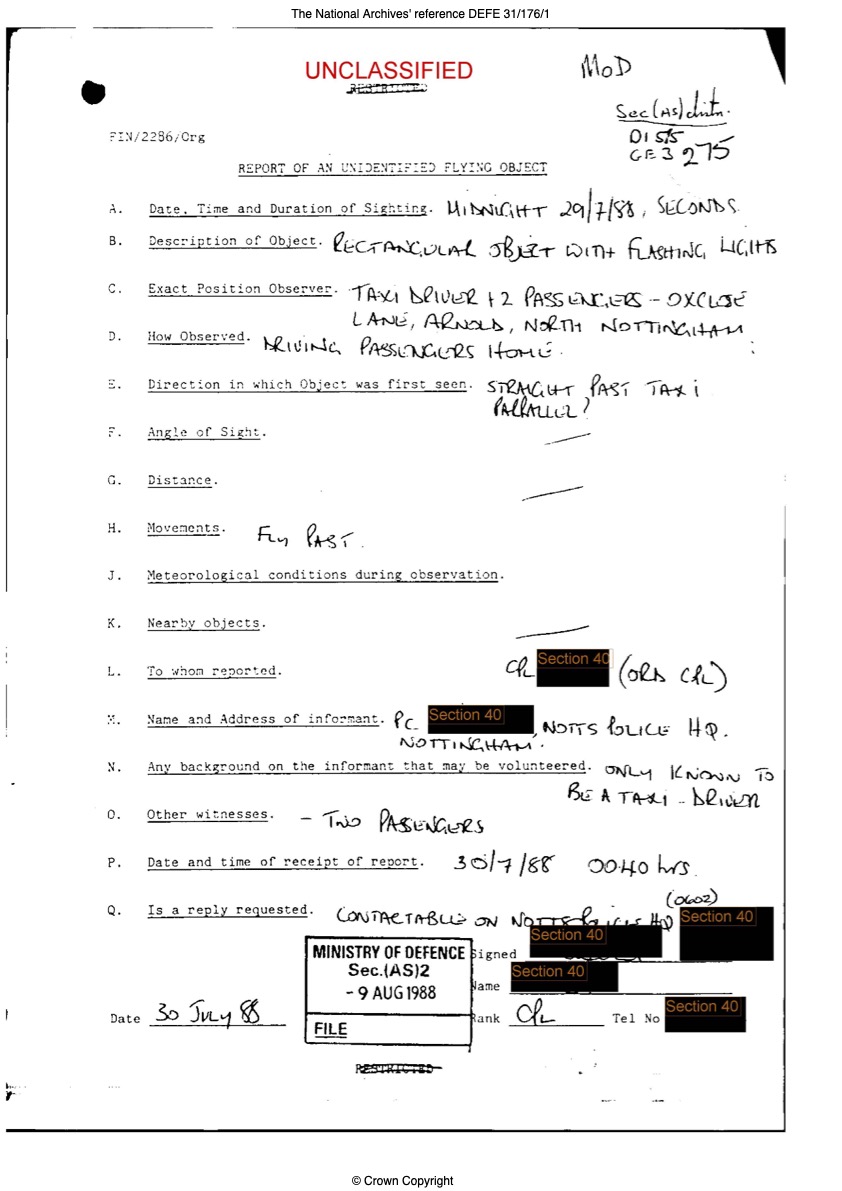 The National Archives' reference DEFE 31/176/1
UNCLASSIFIED
RESTRICTED
MoD
Sec(AS)distn.
DI 55
GE3 275
FIN/2286/Org
REPORT OF AN UNIDENTIFIED FLYING OBJECT
A. Date, Time and Duration of Sighting. MIDNIGHT 29/7/88, SECONDS.
B. Description of Object. RECTANGULAR OBJECT WITH FLASHING LIGHTS
C. Exact Position Observer. TAXI DRIVER + 2 PASSENGERS - OXCLOSE
LANE, ARNOLD, NORTH NOTTINGHAM
D. How Observed. DRIVING PASSENGERS HOME.
E. Direction in which Object was first seen. STRAIGHT PAST TAXI
PARALLEL?
F. Angle of Sight. —
G. Distance. —
H. Movements. FLY PAST.
J. Meteorological conditions during observation.
K. Nearby objects. —
L. To whom reported. CPL Section 40 (ORD CPL)
M. Name and Address of informant. PC Section 40, NOTTS POLICE HQ.
NOTTINGHAM.
N. Any background on the informant that may be volunteered. ONLY KNOWN TO
BE A TAXI - DRIVER
O. Other witnesses. - TWO PASSENGERS
P. Date and time of receipt of report. 30/7/88 0040 hrs.
(0602)
Q. Is a reply requested. CONTACTABLE ON NOTTS POLICE HQ Section 40
Signed Section 40
MINISTRY OF DEFENCE
Sec.(AS)2
- 9 AUG 1988
FILE
Name Section 40
Date 30 JULY 88
Rank CPL Tel No Section 40
RESTRICTED
© Crown Copyright